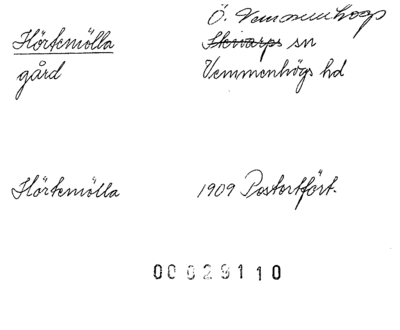 Ö. Vemmenhögs
Hörtemölla Skivarps sn
gård Vemmenhögs hd
Hörtemölla 1909 Postortfört.
00029110